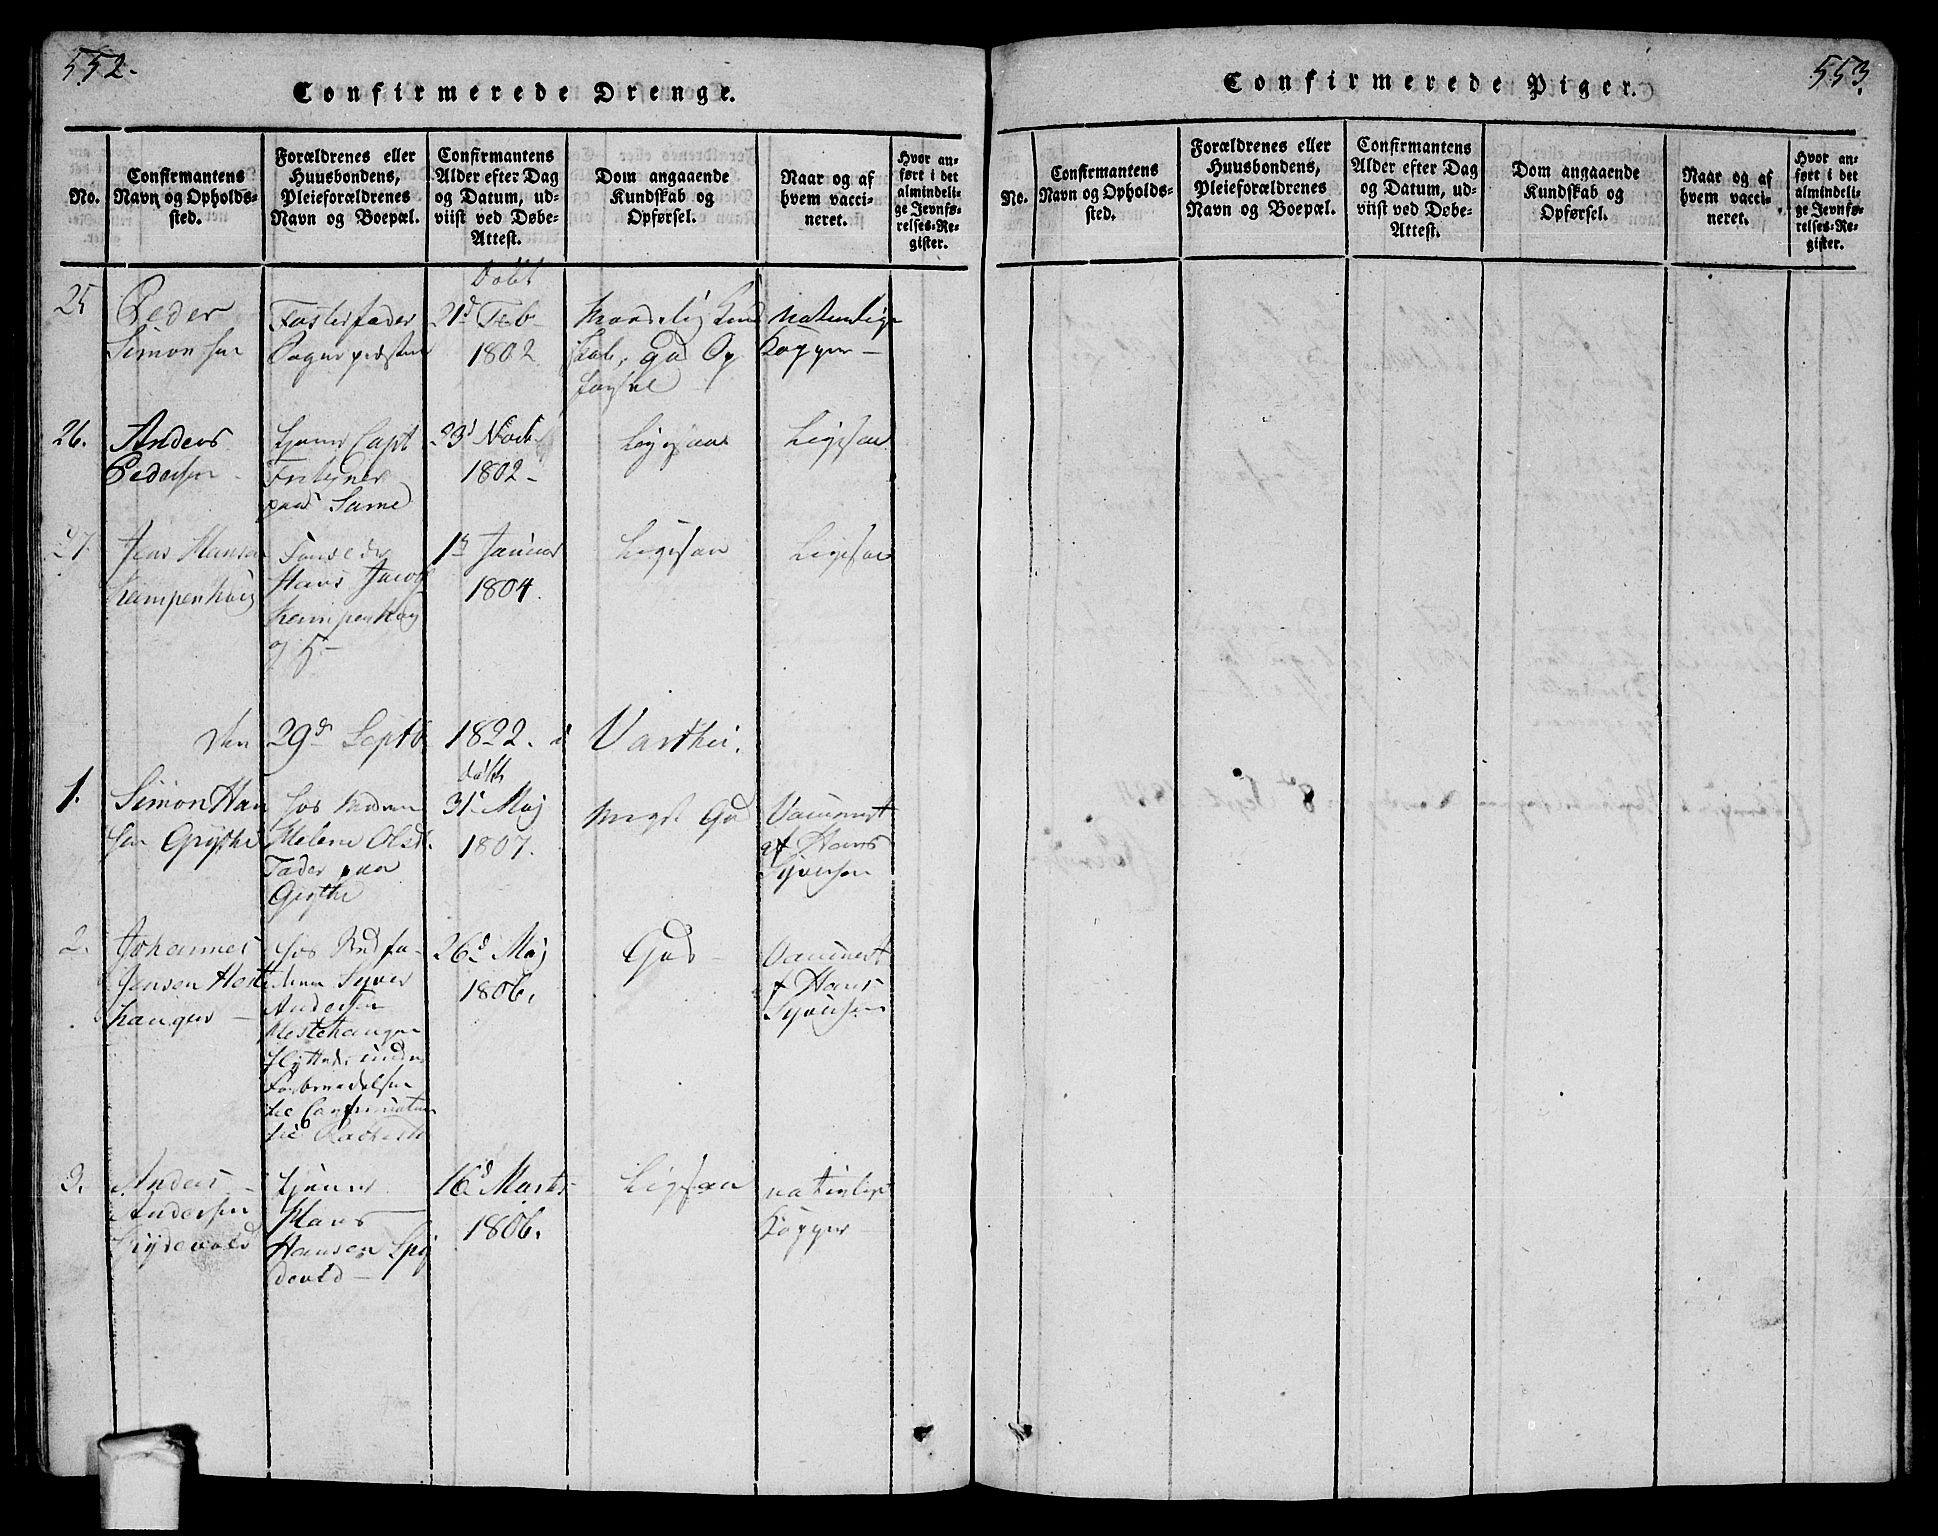 552.
Confirmerede Drenge.
No.
Confirmantens
Navn og Opholds-
sted.
Forældrenes eller
Huusbondens,
Pleieforældrenes
Navn og Boepæl.
Confirmantens
Alder efter Dag
og Datum, ud-
viist ved Døbe-
Attest.
Dom angaaende
Kundskab og
Opførsel.
Naar og af
hvem vacci-
neret.
Hvor an-
ført i det
almindeli-
ge Jevnfø-
relses-Re-
gister.
25
Peder
Simonsen
Fosterfader
Sognepræsten
Døbt
21d Feb
1802
Maadelig Kund
skab, god Op
førsel
naturlige
Kopper
26.
Anders
Pedersen
tjener Capt
paa Lurne
23d Novb
1802
Ligesaa
Ligesaa
27.
Jens Hansen
Kempenhøig
Hans Jacob
Kempenhøy
1ste Januar
1804.
Ligesaa
Ligesaa
den 29de Septb 1822. i Varthei.
1.
Simon Han
sen Grythe
hos Moderen
Helene Olsd.
Fader paa
Grythe
døbt
31t Maj
1807.
meget God
Vaccineret
af Hans
Syversen
2.
Johannes
Jensen Heste
hauger
hos Stedfa-
deren Syver
Andersen
Hestehaugen
flyttede under
Forberedelsen
til Confirmation
til
26d Maj
1806.
God
Vaccineret
af Hans
Syversen
3.
Anders
Andersen
Spydevold
tjener
Hans
Hansen Spy
devold
16d Marts
1806.
Ligesaa
naturlige
Kopper
553.
Confirmerede Piger.
No.
Confirmantens
Navn og Opholds-
sted.
Forældrenes eller
Huusbondens,
Pleieforældrenes
Navn og Boepæl.
Confirmantens
Alder efter Dag
og Datum, ud-
viist ved Døbe-
Attest.
Dom angaaende
Kundskab og
Opførsel.
Naar og af
hvem vacci-
neret.
Hvor an-
ført i det
almindeli-
ge Jevnfø-
relses-Re-
gister.